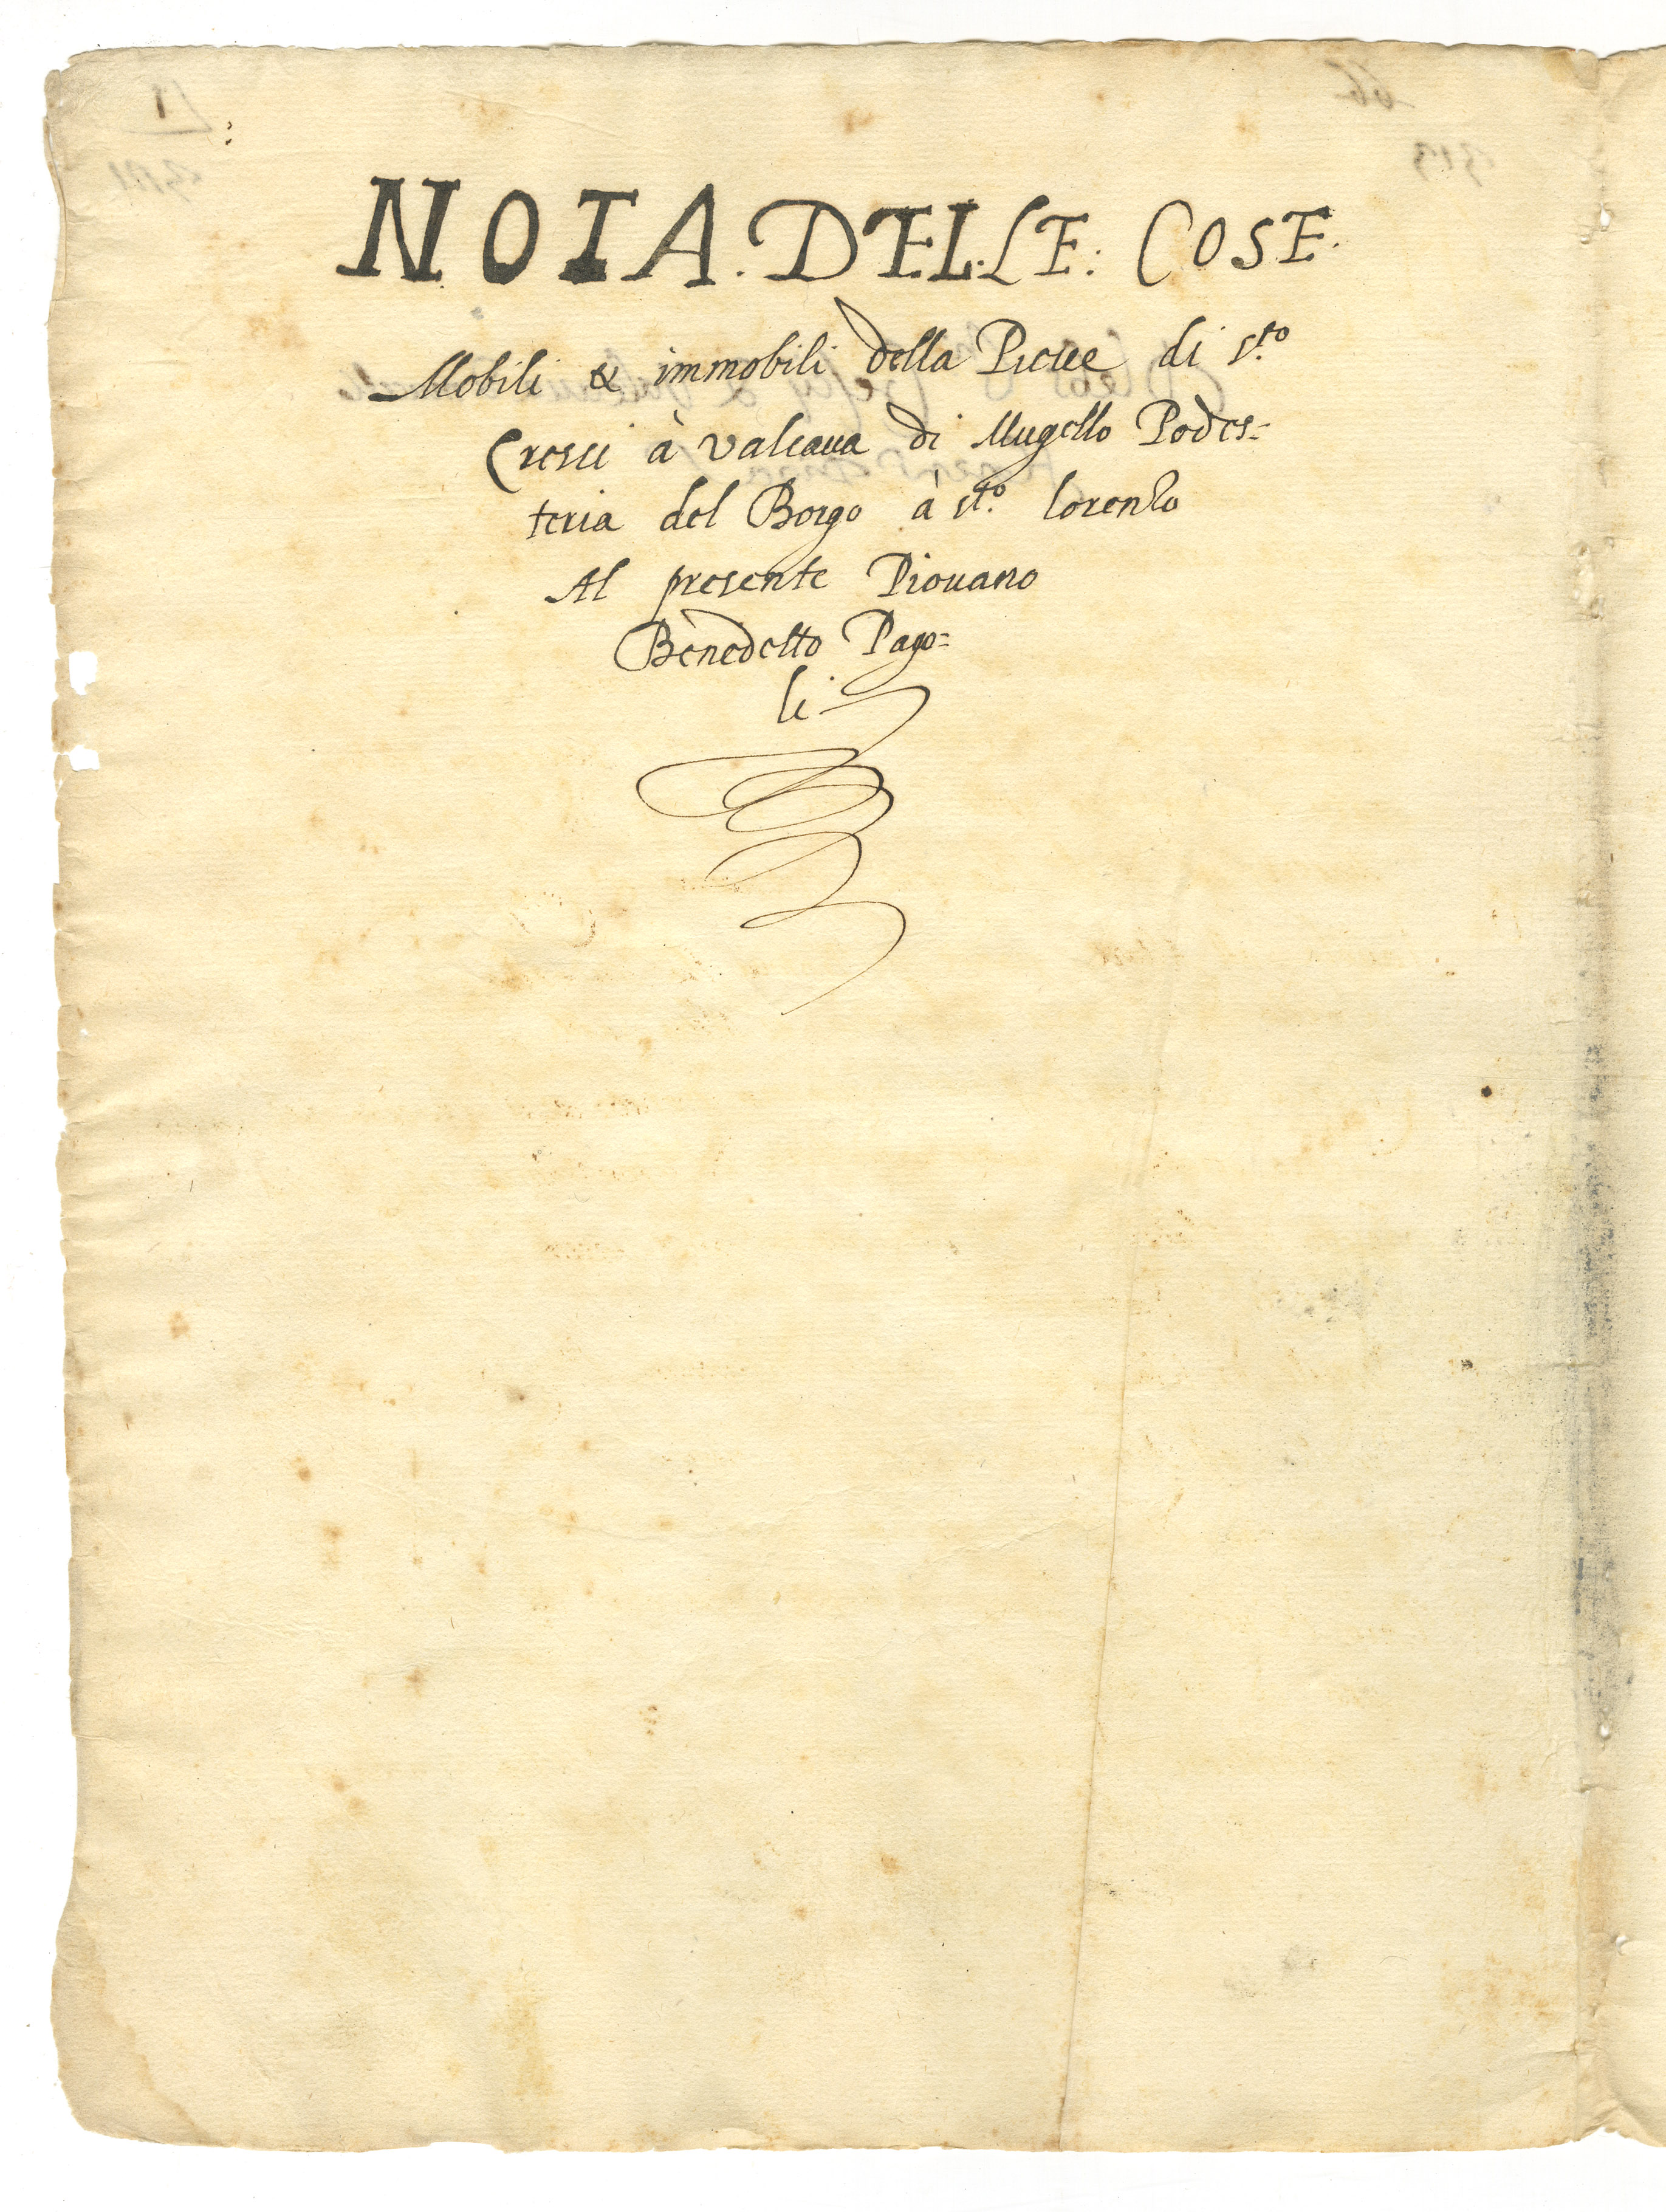 NOTA. DELLE: COSE.
Mobili & immobili della Pieue di s.to
Cresci à Valcaua di Mugello Podes=
teria del Borgo à s.to lorenzo
Al presente Piouano
Benedetto Pago=
li